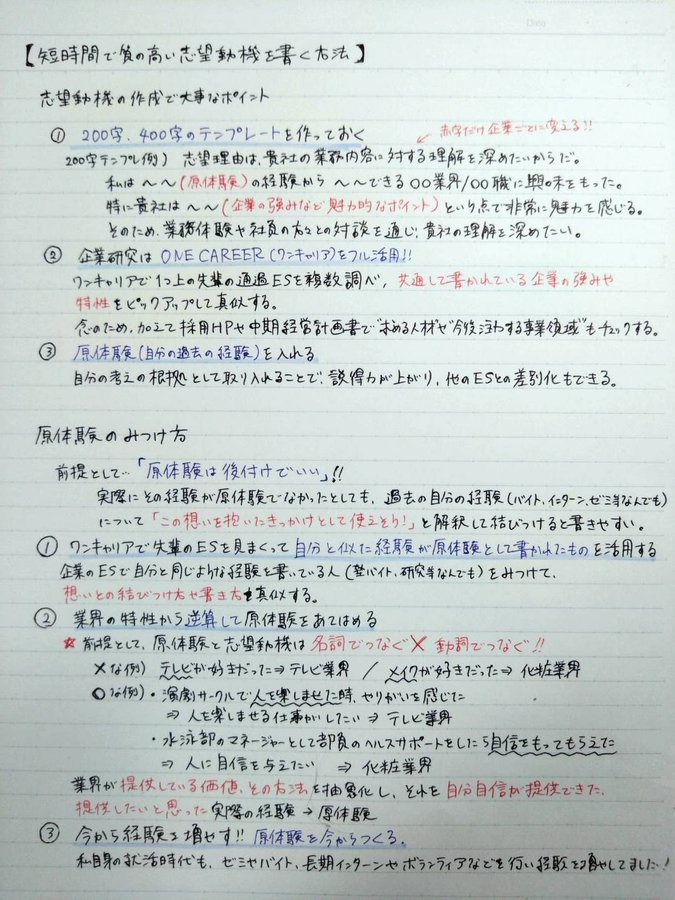 Date
【短時間で質の高い志望動機を書く方法】
志望動機の作成で大事なポイント
① 200字、400字のテンプレートを作っておく
赤字だけ企業ごとに変える!!
200字テンプレ例) 志望理由は、貴社の業務内容に対する理解を深めたいからだ。
私は〜〜(原体験)の経験から 〜〜できる〇〇業界/〇〇職に興味をもった。
特に貴社は〜〜(企業の強みなど魅力的なポイント)という点で非常に魅力を感じる。
そのため、業務体験や社員の方々との対談を通じ、貴社の理解を深めたい。
② 企業研究は ONE CAREER(ワンキャリア)をフル活用!!
ワンキャリアで1つ上の先輩の通過ESを複数調べ、共通して書かれている企業の強みや
特性をピックアップして真似する。
念のため、加えて採用HPや中期経営計画書で"求める人材"や"今後注力する事業領域"もチェックする。
③ 原体験(自分の過去の経験)を入れる
自分の考えの根拠として取り入れることで、説得力が上がり、他のESとの差別化もできる。
原体験のみつけ方
前提として…「原体験は後付けでいい」!!
実際にその経験が原体験でなかったとしても、過去の自分の経験(バイト、インターン、ゼミ等なんでも)
について「この想いを抱いたきっかけとして使えそう!」と解釈して結びつけると書きやすい。
① ワンキャリアで先輩のESを見まくって自分と似た経験が原体験として書かれたものを活用する
企業のESで自分と同じような経験を書いている人(塾バイト、研究等なんでも)をみつけて、
想いとの結びつけ方や書き方を真似する。
② 業界の特性から逆算して原体験をあてはめる
☆前提として、原体験と志望動機は名詞でつなぐ✕ 動詞でつなぐ!!
✕な例) テレビが好きだった⇒テレビ業界 / メイクが好きだった⇒化粧業界
〇な例)・演劇サークルで人を楽しませた時、やりがいを感じた
⇒人を楽しませる仕事がしたい⇒テレビ業界
・水泳部のマネージャーとして部員のヘルスサポートをしたら自信をもってもらえた
⇒人に自信を与えたい ⇒化粧業界
業界が提供している価値、その方法を抽象化し、それを自分自信が提供できた、
提供したいと思った実際の経験→原体験
③ 今から経験を増やす!! 原体験を今からつくる。
私自身の就活時代も、ゼミやバイト、長期インターンやボランティアなどを行い経験を増やしてました!